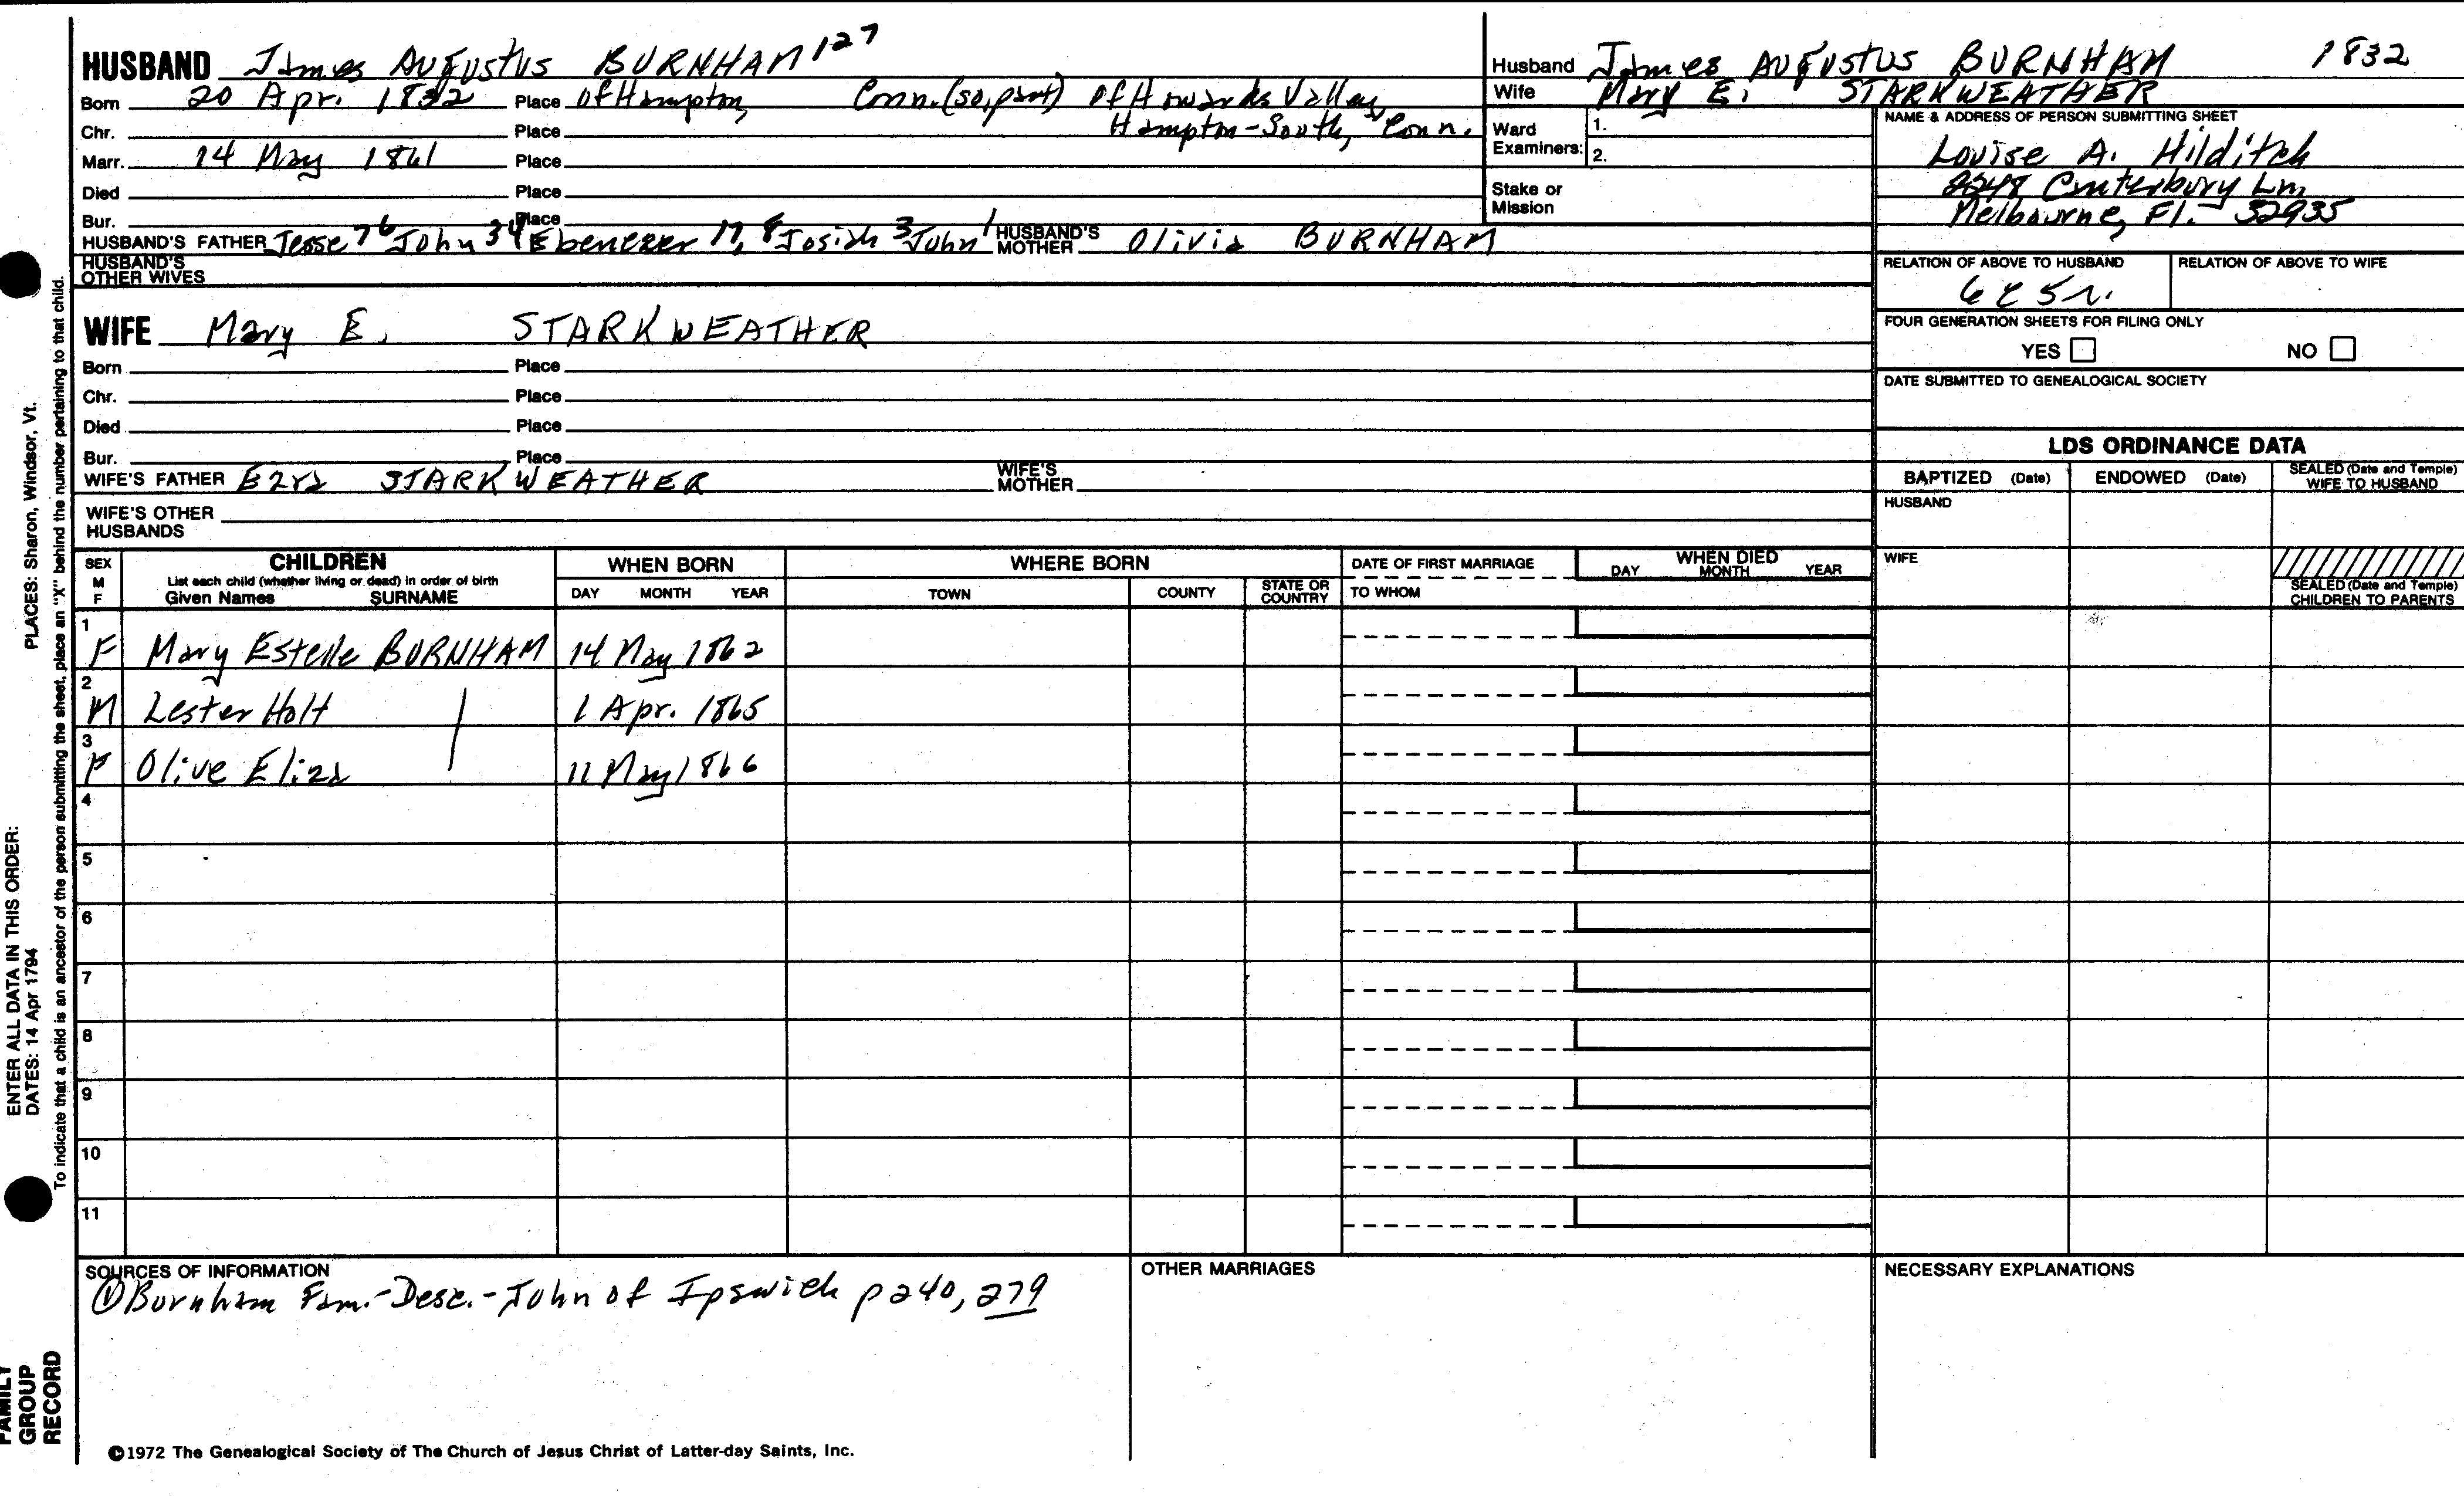 HUSBAND James Augustus BURNHAM 127
Born 20 Apr. 1832 Place of Hampton, Conn. (so. part) of Howards Valley,
Chr. Place Hampton-South, Conn.
Marr. 14 May 1861 Place
Died Place
Bur. Place
HUSBAND'S FATHER Jesse 76 John 34 Ebenezer 17, 8 Josiah 3 John 1 HUSBAND'S MOTHER Olivia BURNHAM
HUSBAND'S OTHER WIVES
WIFE Mary E. STARKWEATHER
Born Place
Chr. Place
Died Place
Bur. Place
WIFE'S FATHER Ezra STARKWEATHER WIFE'S MOTHER
WIFE'S OTHER HUSBANDS
Husband James Augustus BURNHAM 1832
Wife Mary E. STARKWEATHER
Ward Examiners: 1.
2.
Stake or Mission
NAME & ADDRESS OF PERSON SUBMITTING SHEET
Louise A. Hilditch
2248 Canterbury Ln,
Melbourne, Fl. 32935
RELATION OF ABOVE TO HUSBAND RELATION OF ABOVE TO WIFE
6C5r.
FOUR GENERATION SHEETS FOR FILING ONLY
YES NO
DATE SUBMITTED TO GENEALOGICAL SOCIETY
LDS ORDINANCE DATA
BAPTIZED (Date) ENDOWED (Date) SEALED (Date and Temple) WIFE TO HUSBAND
HUSBAND
WIFE
SEALED (Date and Temple) CHILDREN TO PARENTS
SEX M F CHILDREN WHEN BORN WHERE BORN DATE OF FIRST MARRIAGE WHEN DIED
List each child (whether living or dead) in order of birth
Given Names SURNAME DAY MONTH YEAR TOWN COUNTY STATE OR COUNTRY TO WHOM DAY MONTH YEAR
1 F Mary Estelle BURNHAM 14 May 1862
2 M Lester Holt 1 Apr. 1865
3 F Olive Eliza 11 May 1866
4
5
6
7
8
9
10
11
SOURCES OF INFORMATION
① Burnham Fam.-Desc.-John of Ipswich p 240, 279
OTHER MARRIAGES
NECESSARY EXPLANATIONS
©1972 The Genealogical Society of The Church of Jesus Christ of Latter-day Saints, Inc.
FAMILY GROUP RECORD
ENTER ALL DATA IN THIS ORDER:
DATES: 14 Apr 1794
PLACES: Sharon, Windsor, Vt.
To indicate that a child is an ancestor of the person submitting the sheet, place an "X" behind the number pertaining to that child.